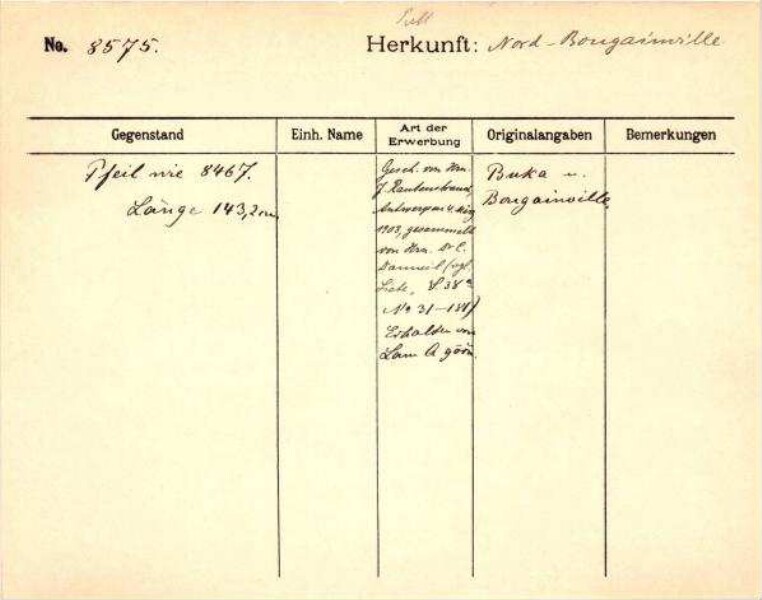 No. 8575.
Herkunft: Nord-Bougainville
Gegenstand
Einh. Name
Art der
Erwerbung
Originalangaben
Bemerkungen
Pfeil wie 8467.
Länge 143,2 cm
Gesch. von Hrn.
J. Rautenstrauch,
Antwerpen 4. 
1903, gesammelt
von Hrn. Dr C.
(vgl.
Liste, S. 38a
No 31-187)
Erhalten von
Lam A göön.
Buka u.
Bougainville,